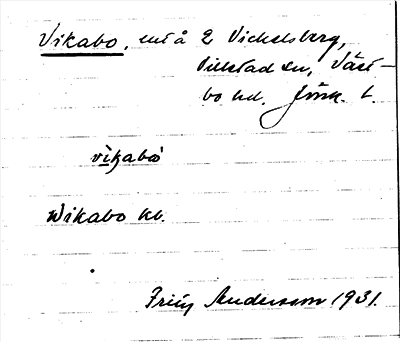 Vikabo, ent å 2 Vickelsberg,
Villstad sn, Väst-
bo hd. Jönk. l.
vi̱kabo
Wikabo kb.
Andersson 1931.